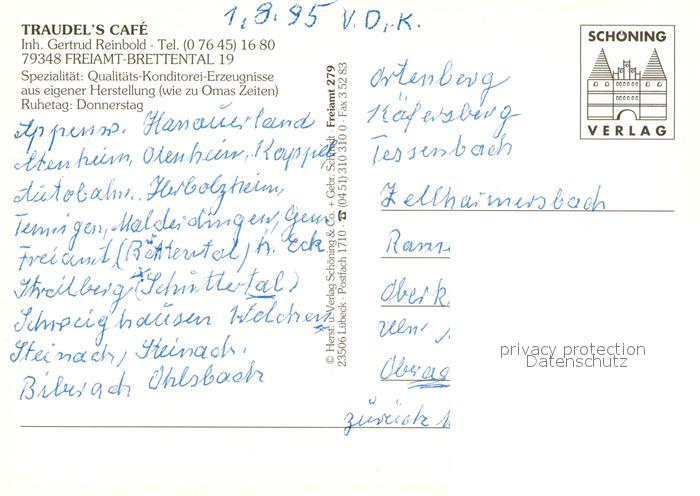 1.9.95 V.D.K.
TRAUDEL'S CAFÉ
Inh. Gertrud Reinbold · Tel. (0 76 45) 16 80
79348 FREIAMT-BRETTENTAL 19
Spezialität: Qualitäts-Konditorei-Erzeugnisse
aus eigener Herstellung (wie zu Omas Zeiten)
Ruhetag: Donnerstag
Appenw. Hanauerland
Altenheim, Ottenheim, Kappel
Autobahn. Herbolzheim,
Tenningen, Malderdingen,
Freiamt (Brettental) h. Eck
Streitberg (Schuttertal)
Schweighausen Welchen
Steinach, Steinach.
Biberach Ohlsbach
© Herst. u. Verlag Schöning & Co. + Gebr. Schmidt · Freiamt 279
23506 Lübeck · Postfach 1710 · ☎ (04 51) 310 310 0 · Fax 3 52 83
SCHÖNING
VERLAG
Ortenberg
Käfersberg
Fessenbach
Zellhaimersbach
Rams
Oberk
Oberac
zurück
privacy protection
Datenschutz